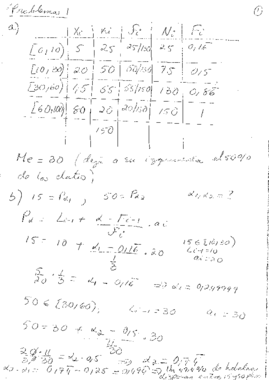 Problemas 1
a)
xi ni fi Ni Fi
[0,10) 5 25 25/150 25 0,16
[10,30) 20 50 50/150 75 0,5
[30,60) 45 55 55/150 130 0,86
[60,100) 80 20 20/150 150 1
150
Me = 30 (deja a su izquierda al 50%
de los datos)
b) 15 = Pα1 , 50 = Pα2 α1, α2 = ?
Pα = Li-1 + α - Fi-1 / fi · ai
15 = 10 + α1 - 0,16 / 1/3 · 20
15 ∈ [10,30)
Li-1 = 10
ai = 20
5/20 · 1/3 = α1 - 0,16 ⇒ α1 = 0,249999
50 ∈ [30,60), Li-1 = 30 ai = 30
50 = 30 + α2 - 0,5 / 11/30 · 30
20/30 · 11/30 = α2 - 0,5 ⇒ α2 = 0,74